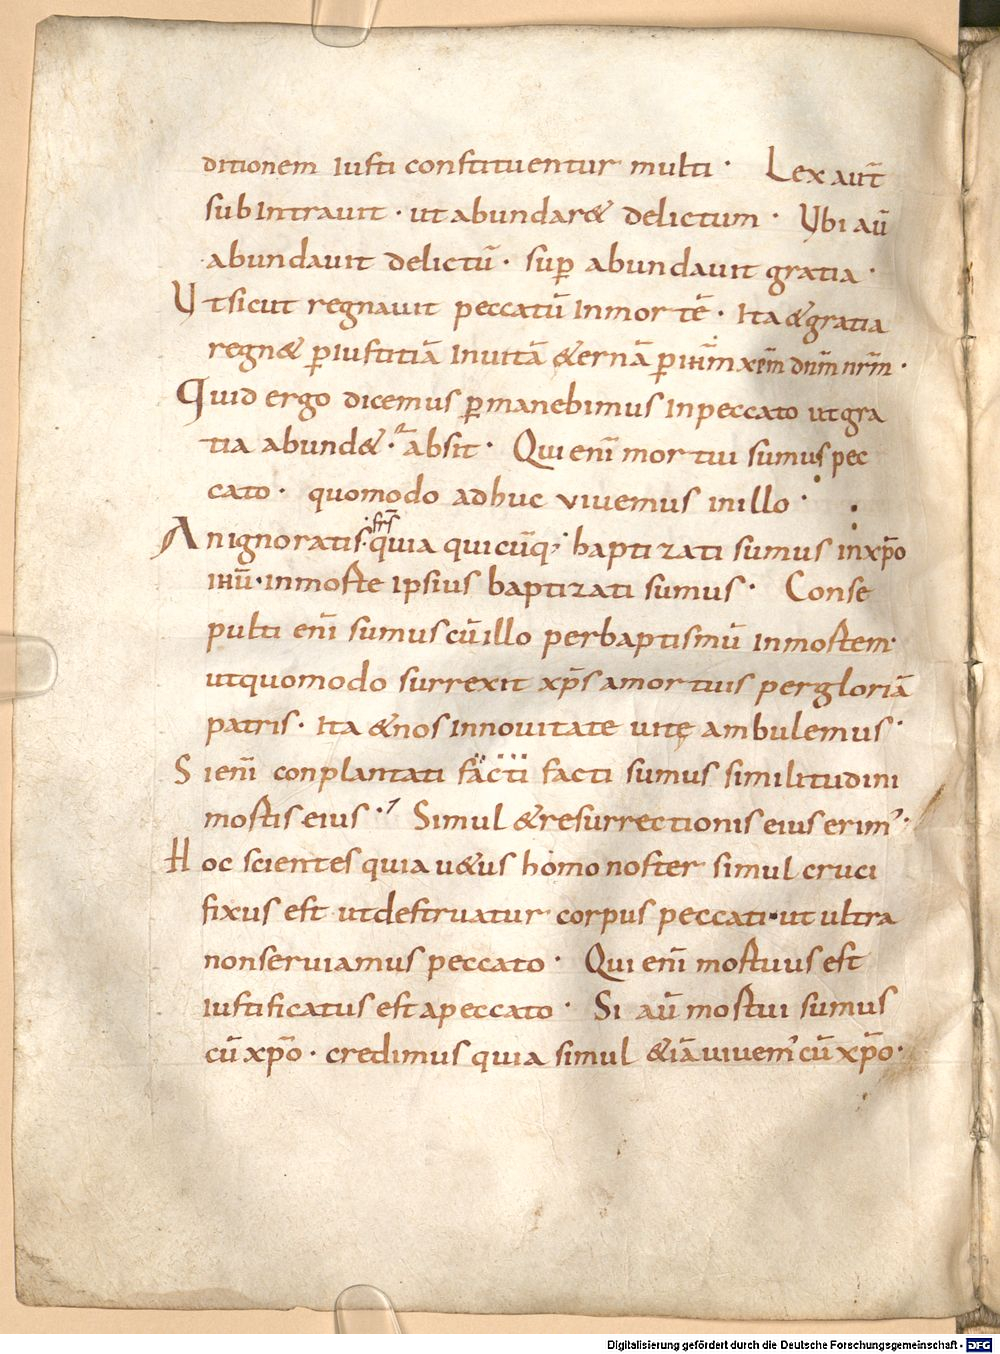 ditionem iusti constituentur multi · Lex aut̄
subintrauit · ut abundar& delictum · Vbi aū
abundauit delictū · suꝑ abundauit gratia ·
Vt sicut regnauit peccatū in mortē · Ita & gratia
regn& ꝑ iustitiā in uitā &ernā ꝑ ihm̄ xp̄m dnm̄ nrm̄ ·
Quid ergo dicemus ꝑmanebimus in peccato ut gra
tia abund& · absit · Qui enī mortui sumus pec
cato · quomodo adhuc viuemus in illo ·
An ignoratis · frs̄ quia quicūq; baptizati sumus in xp̄o
ihū · in morte ipsius baptizati sumus · Conse
pulti enī sumus cū illo per baptismū in mortem ·
ut quomodo surrexit xp̄s a mortuis per gloriā
patris · Ita & nos in nouitate uitę ambulemus ·
Si enī conplantati facti facti sumus similitudini
mortis eius · Simul & resurrectionis eius erim' ·
Hoc scientes quia u&us homo noster simul cruci
fixus est ut destruatur corpus peccati · ut ultra
non seruiamus peccato · Qui enī mortuus est
iustificatus est a peccato · Si aū mortui sumus
cū xp̄o · credimus quia simul &iā uiuem' cū xp̄o ·
Digitalisierung gefördert durch die Deutsche Forschungsgemeinschaft - DFG